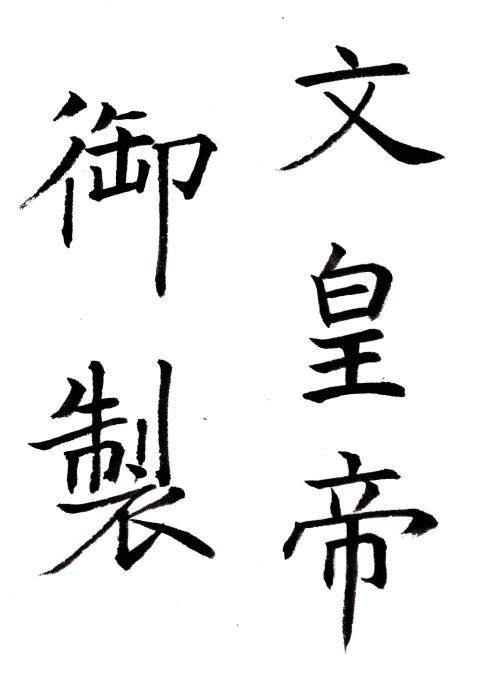 文皇帝
御製